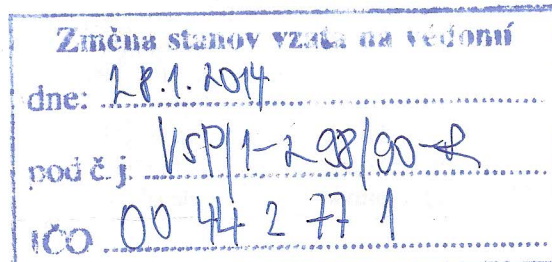 Změna stanov vzata na vědomí
dne: 28.1.2014
pod č.j. VSP/1-298/90-R
IČO 00 44 2 77 1